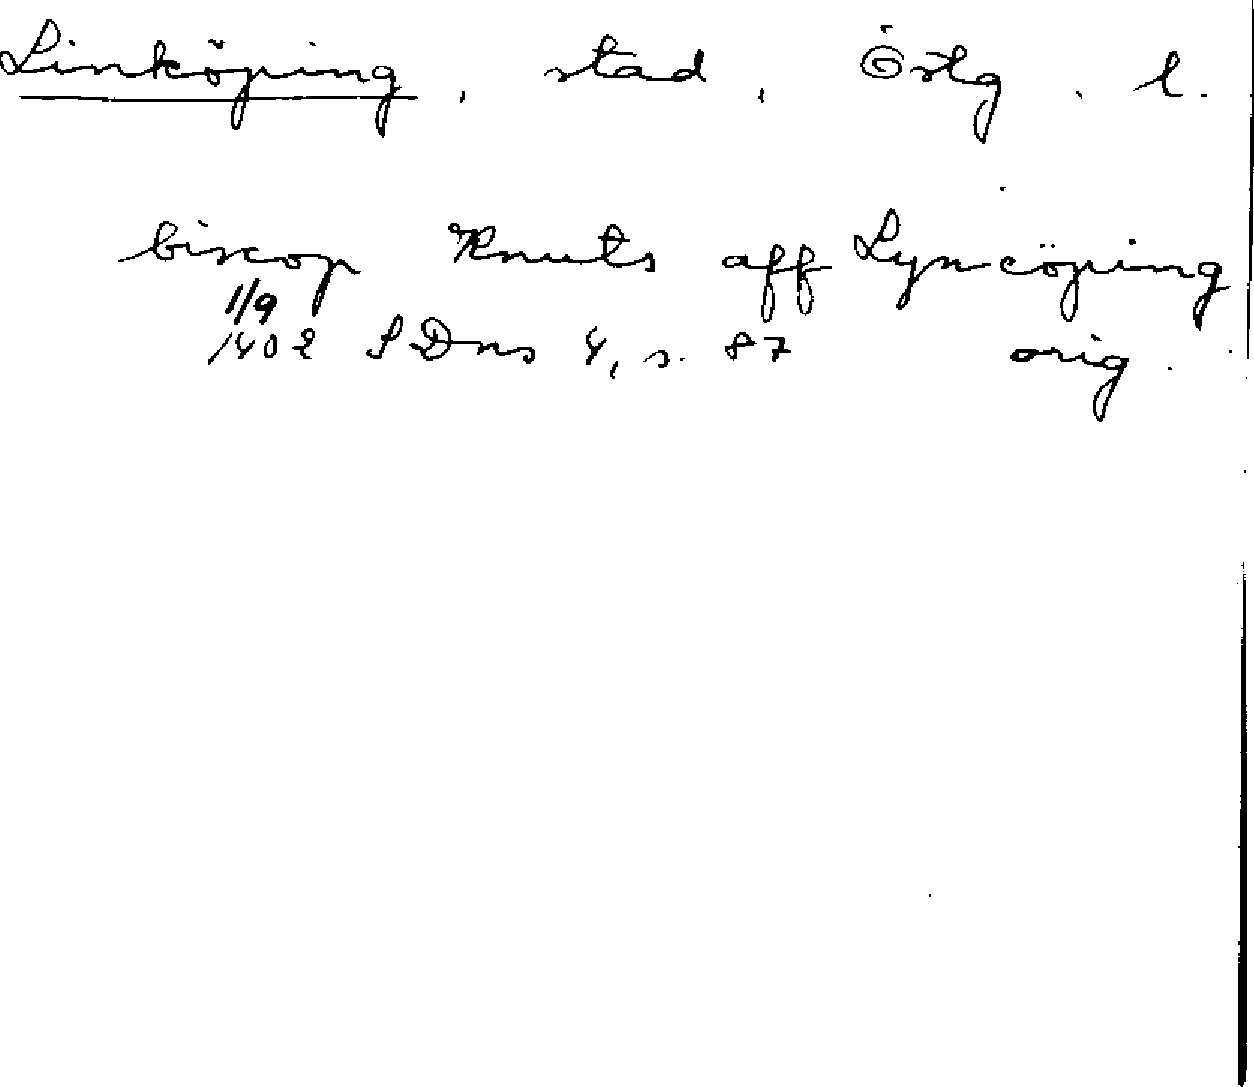 Linköping, stad, Östg. l.
biscop Knuts aff Lyncöping
1/9
1402 SDns 4, s. 87 orig.